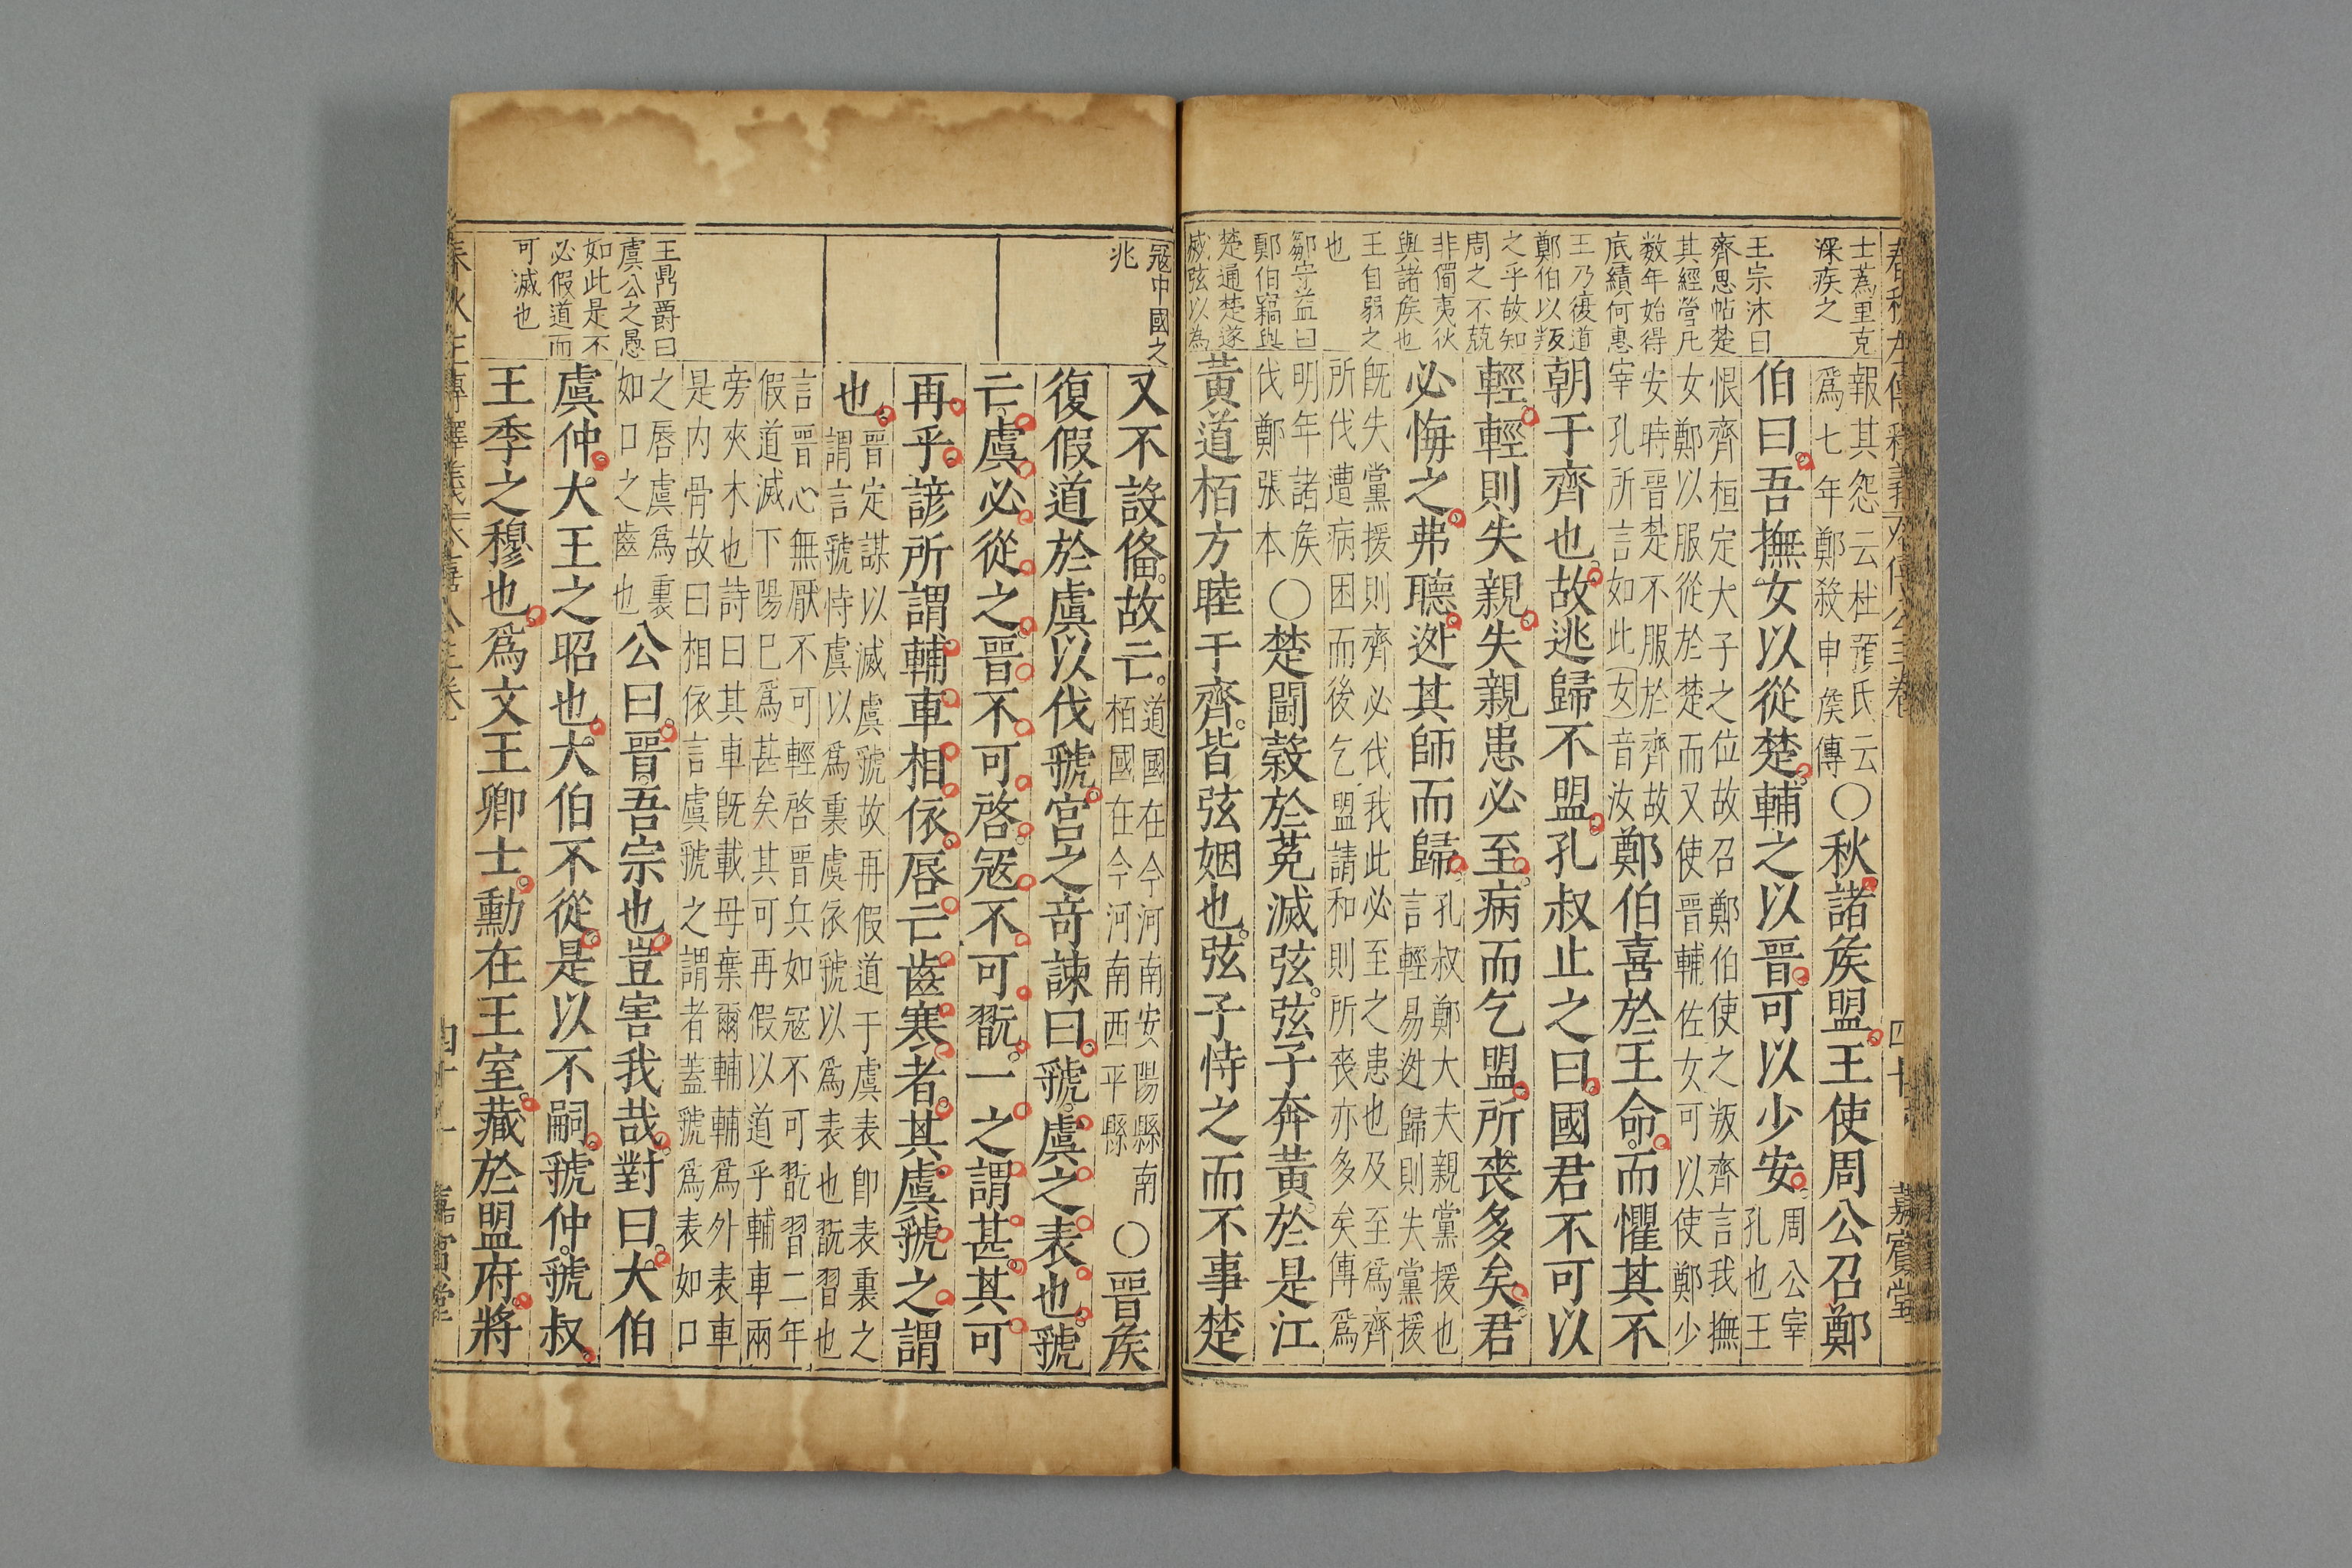 士蒍里克
深疾之
王宗沐曰
齊思帖楚
其經營凡
数年始得
底績何惠
王乃復道
鄭伯以叛
之乎故知
周之不兢
非僴夷狄
與諸矦也
王自弱之
也
鄒守益曰
鄭伯竊與
楚通楚遂
滅弦以為
報其怨云杜預氏云
爲七年鄭殺申矦傳
〇秋諸矦盟王使周公召鄭
伯曰吾撫女以從楚輔之以晋可以少安
周公宰
孔也王
恨齊桓定大子之位故召鄭伯使之叛齊言我撫
女鄭以服從於楚而又使晋輔佐女可以使鄭少
安時晋楚不服於齊故
宰孔所言如此女音汝
鄭伯喜於王命而懼其不
朝于齊也故逃歸不盟孔叔止之曰國君不可以
輕輕則失親失親患必至病而乞盟所喪多矣君
必悔之弗聽迯其師而歸
孔叔鄭大夫親黨援也
言輕易迯歸則失黨援
既失黨援則齊必伐我此必至之患也及至爲齊
所伐遭病困而後乞盟請和則所喪亦多矣傳爲
明年諸矦
伐鄭張本
〇楚鬬穀於菟滅弦弦子奔黃於是江
黃道栢方睦于齊皆弦姻也弦子恃之而不事楚
春秋左傳釋義
僖公三卷
四十
嘉賓堂
寇中國之
兆
王鼎爵曰
虞公之愚
如此是不
必假道而
可滅也
又不設俻故亡
道國在今河南安陽縣南
栢國在今河南西平縣
〇晋矦
復假道於虞以伐虢宮之竒諫曰虢虞之表也虢
亡虞必從之晋不可啓寇不可翫一之謂甚其可
再乎諺所謂輔車相依唇亡齒寒者其虞虢之謂
也
晋定謀以滅虞虢故再假道于虞表卽表裏之
謂言虢恃虞以爲裏虞依虢以爲表也翫習也
言晋心無厭不可輕啓晋兵如寇不可翫習二年
假道滅下陽巳爲甚矣其可再假以道乎輔車兩
旁夾木也詩曰其車既載毋棄爾輔輔爲外表車
是内骨故曰相依言虞虢之謂者蓋虢爲表如口
之唇虞爲裏
如口之齒也
公曰晋吾宗也豈害我哉對曰大伯
虞仲大王之昭也大伯不從是以不嗣虢仲虢叔
王季之穆也爲文王卿士勳在王室藏於盟府將